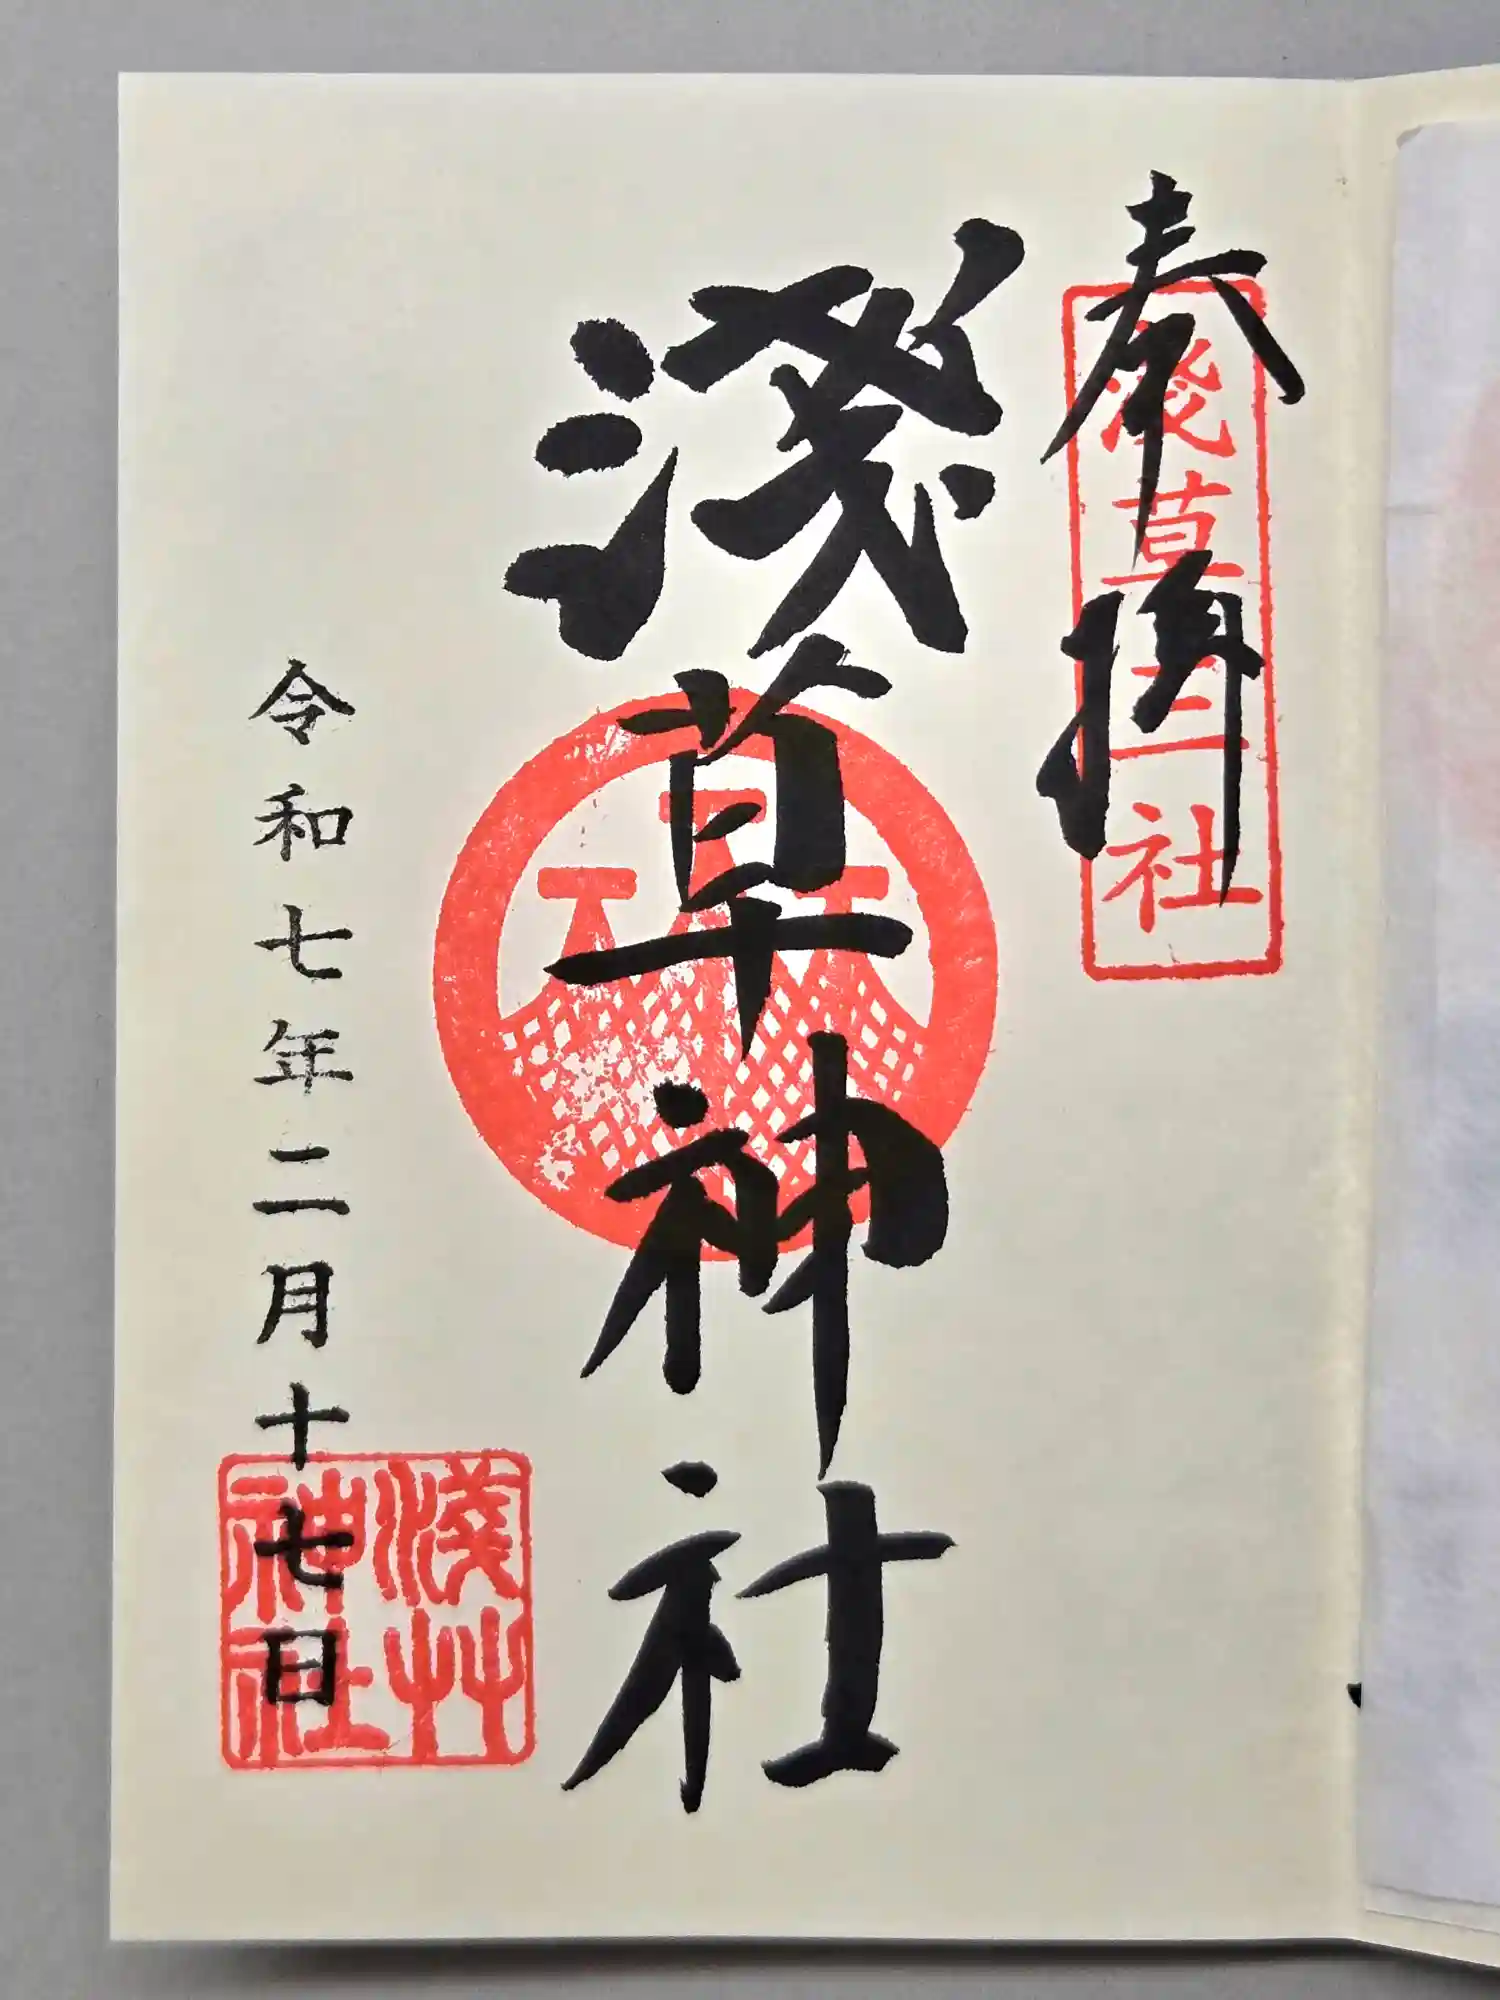 奉拝
淺草三社
淺草神社
令和七年二月十七日
淺艸
神社